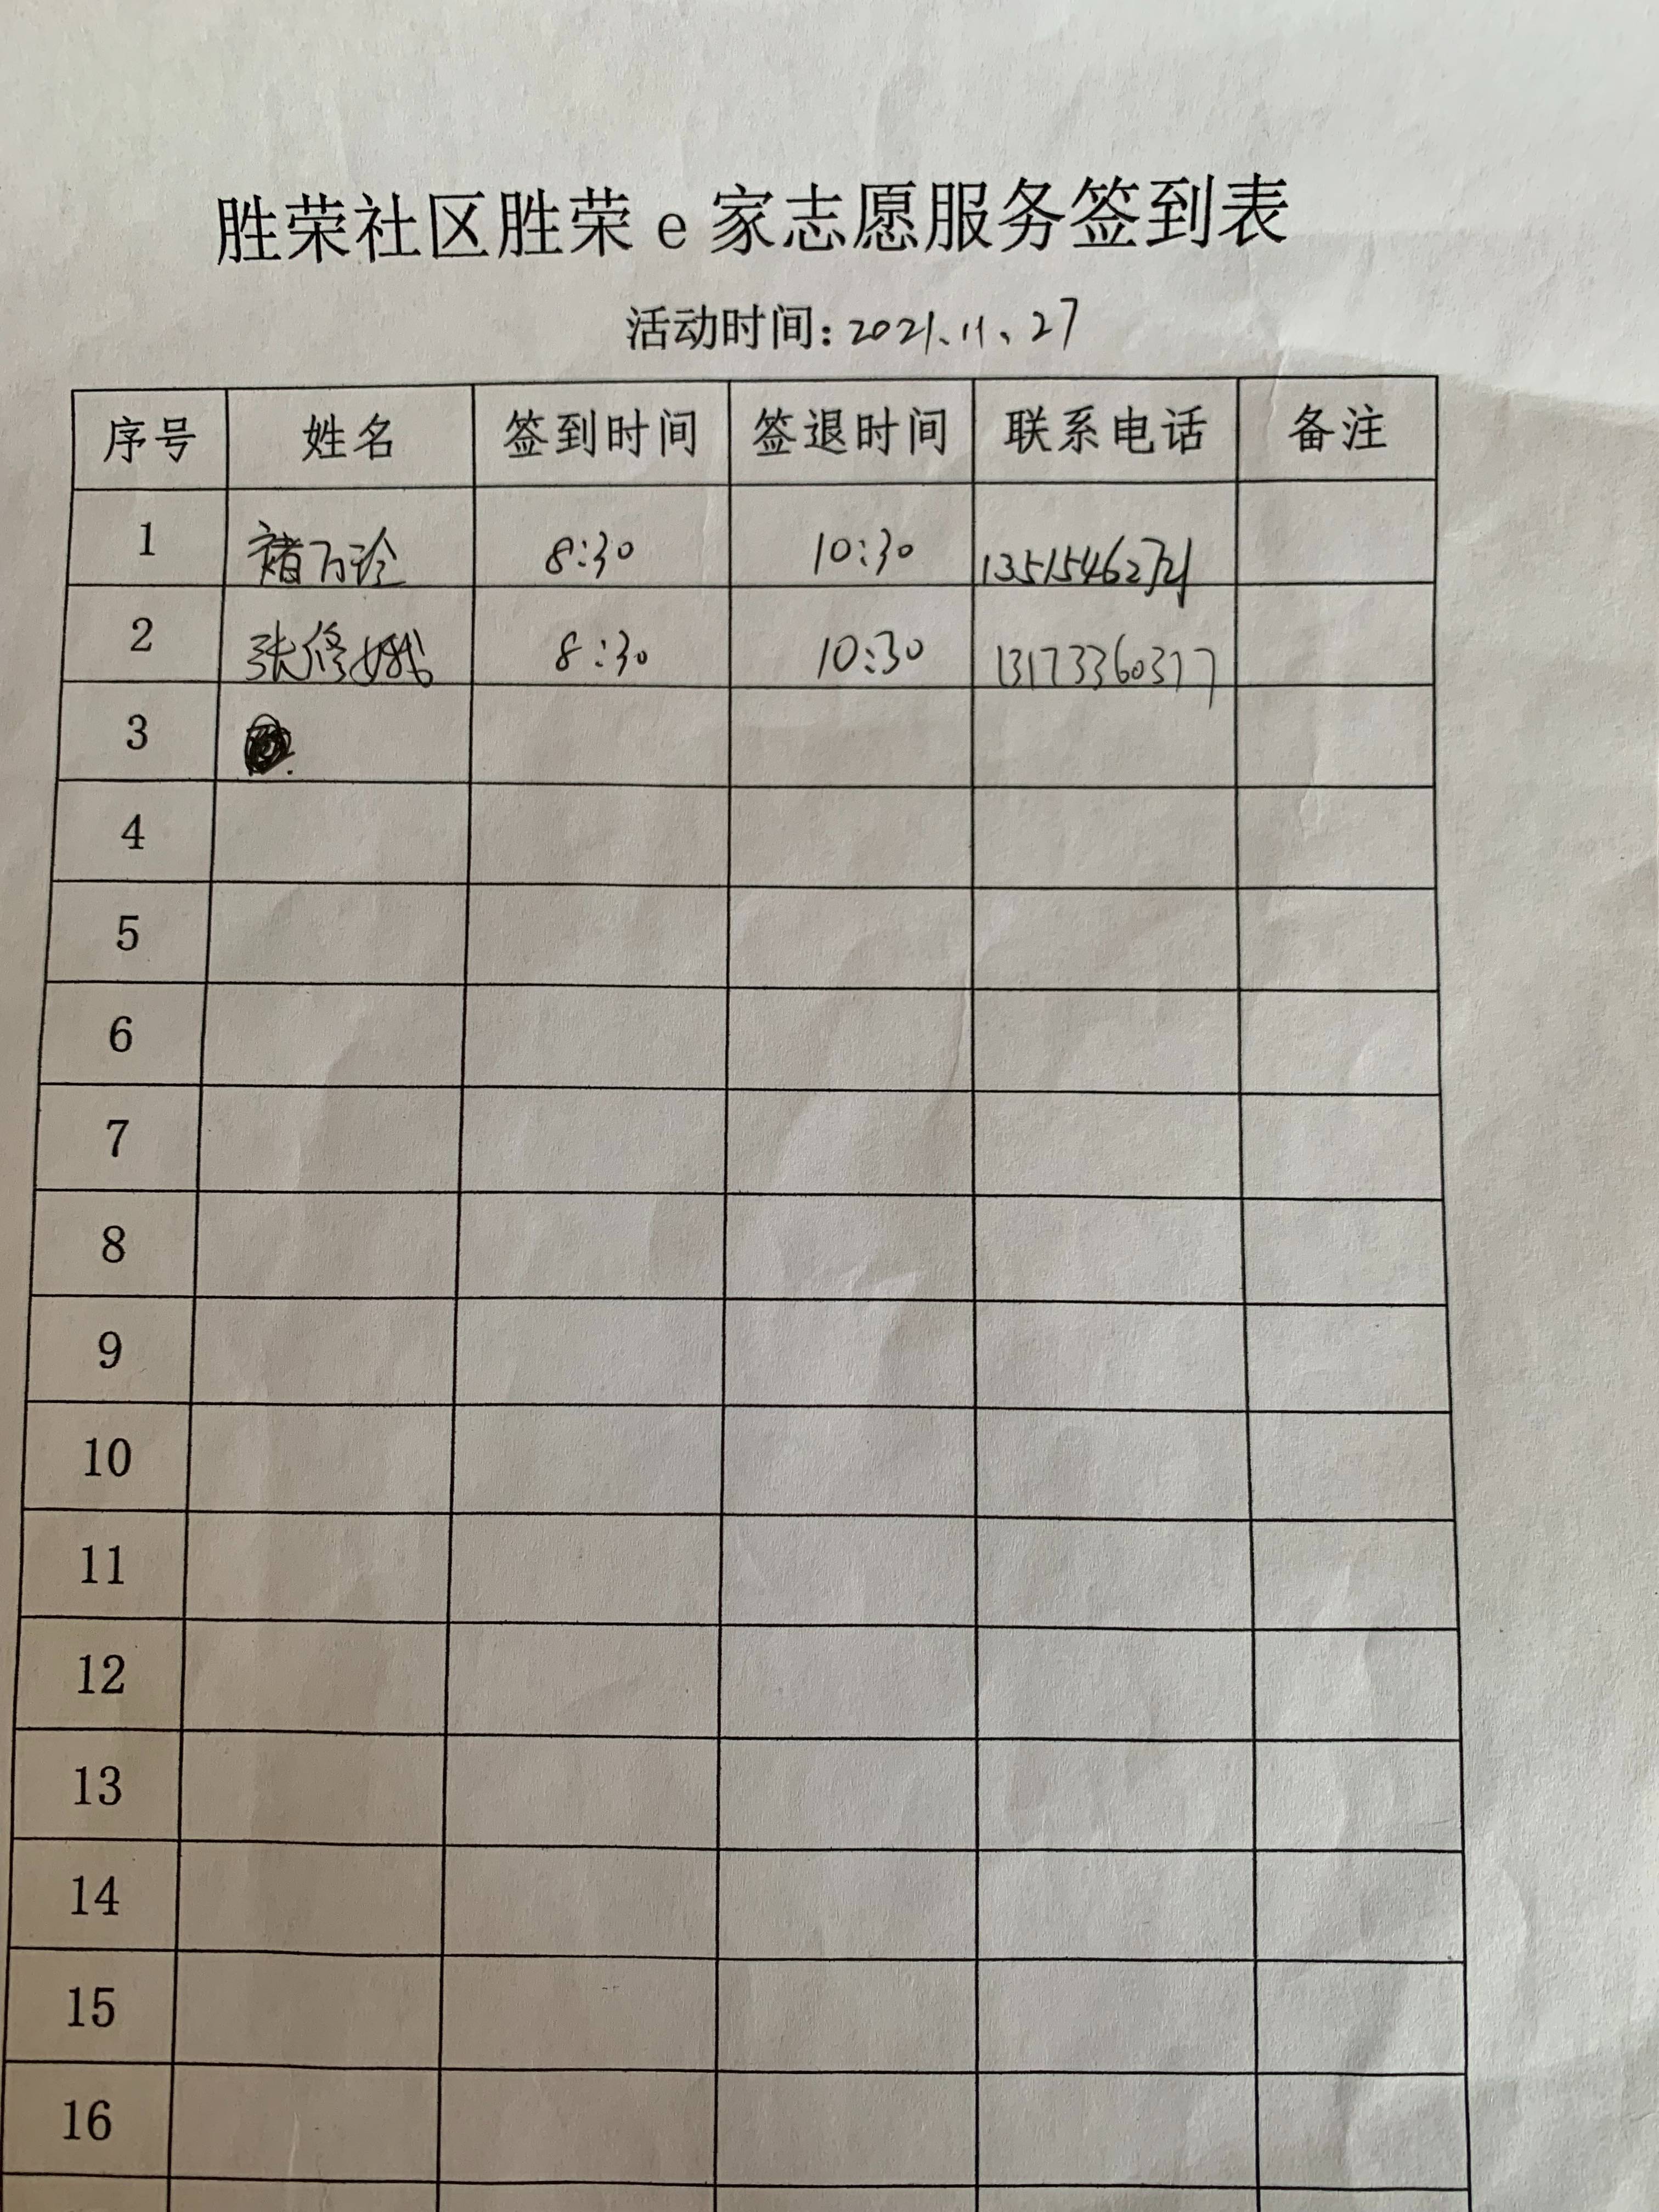 胜荣社区胜荣e家志愿服务签到表
活动时间:2021、11、27
序号 姓名 签到时间 签退时间 联系电话 备注
1 褚万珍 8:30 10:30
2 张修娥 8:30 10:30 13173360377
3
4
5
6
7
8
9
10
11
12
13
14
15
16